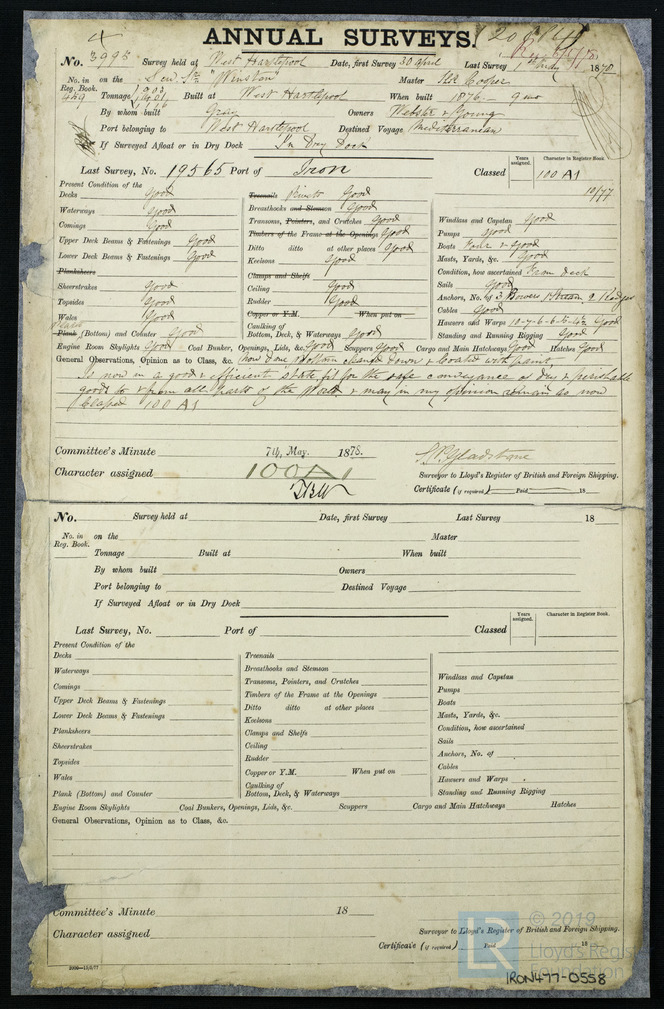 4
ANNUAL SURVEYS.
No. 3998 Survey held at West Hartlepool Date, first Survey 30 April Last Survey 1st May 1878
No. in Reg. Book. 449 on the Screw Str "Winston" Master Cooper
Tonnage Built at West Hartlepool When built 1876 - 9 mo
By whom built Gray Owners Webster & Young
Port belonging to West Hartlepool Destined Voyage Mediterranean
If Surveyed Afloat or in Dry Dock In Dry Dock
Years assigned. Character in Register Book.
Last Survey, No. 19565 Port of Iron Classed 100 A1
10/77
Present Condition of the
Decks Good
Waterways Good
Comings Good
Upper Deck Beams & Fastenings Good
Lower Deck Beams & Fastenings Good
Planksheers
Sheerstrakes Good
Topsides Good
Wales Good
Plates
Plank (Bottom) and Counter Good
Treenails Rivets Good
Breasthooks and Stemson Good
Transoms, Pointers, and Crutches Good
Timbers of the Frame at the Openings Good
Ditto ditto at other places Good
Keelsons Good
Clamps and Shelfs
Ceiling Good
Rudder Good
Copper or Y.M. When put on
Caulking of Bottom, Deck, & Waterways Good
Windlass and Capstan Good
Pumps Good
Boats Four & Good
Masts, Yards, &c. Good
Condition, how ascertained From deck
Sails Good
Anchors, No. of 3 Bowers 1 Stream 2 Kedges
Cables Good
Hawsers and Warps Good
Standing and Running Rigging Good
Engine Room Skylights Good Coal Bunkers, Openings, Lids, &c. Good Scuppers Good Cargo and Main Hatchways Good Hatches Good
General Observations, Opinion as to Class, &c. Now done Bottom cleaned down & Coated with paint,
Is now in a good & efficient state, fit for the safe conveyance of Dry & perishable
goods to & from all parts of the World & may in my opinion remain as now
Classed 100 A1
Committee's Minute 7th May. 1878.
Character assigned 100 A1
Gladstone
Surveyor to Lloyd's Register of British and Foreign Shipping.
Certificate (if required) Paid 18
No. Survey held at Date, first Survey Last Survey 18
No. in Reg. Book. on the Master
Tonnage Built at When built
By whom built Owners
Port belonging to Destined Voyage
If Surveyed Afloat or in Dry Dock
Years assigned. Character in Register Book.
Last Survey, No. Port of Classed
Present Condition of the
Decks
Waterways
Comings
Upper Deck Beams & Fastenings
Lower Deck Beams & Fastenings
Planksheers
Sheerstrakes
Topsides
Wales
Plank (Bottom) and Counter
Treenails
Breasthooks and Stemson
Transoms, Pointers, and Crutches
Timbers of the Frame at the Openings
Ditto ditto at other places
Keelsons
Clamps and Shelfs
Ceiling
Rudder
Copper or Y.M. When put on
Caulking of Bottom, Deck, & Waterways
Windlass and Capstan
Pumps
Boats
Masts, Yards, &c.
Condition, how ascertained
Sails
Anchors, No. of
Cables
Hawsers and Warps
Standing and Running Rigging
Engine Room Skylights Coal Bunkers, Openings, Lids, &c. Scuppers Cargo and Main Hatchways Hatches
General Observations, Opinion as to Class, &c.
Committee's Minute 18
Character assigned
Surveyor to Lloyd's Register of British and Foreign Shipping.
Certificate (if required) Paid 18
LR © 2019
Lloyd's Regis
IRON477-0558